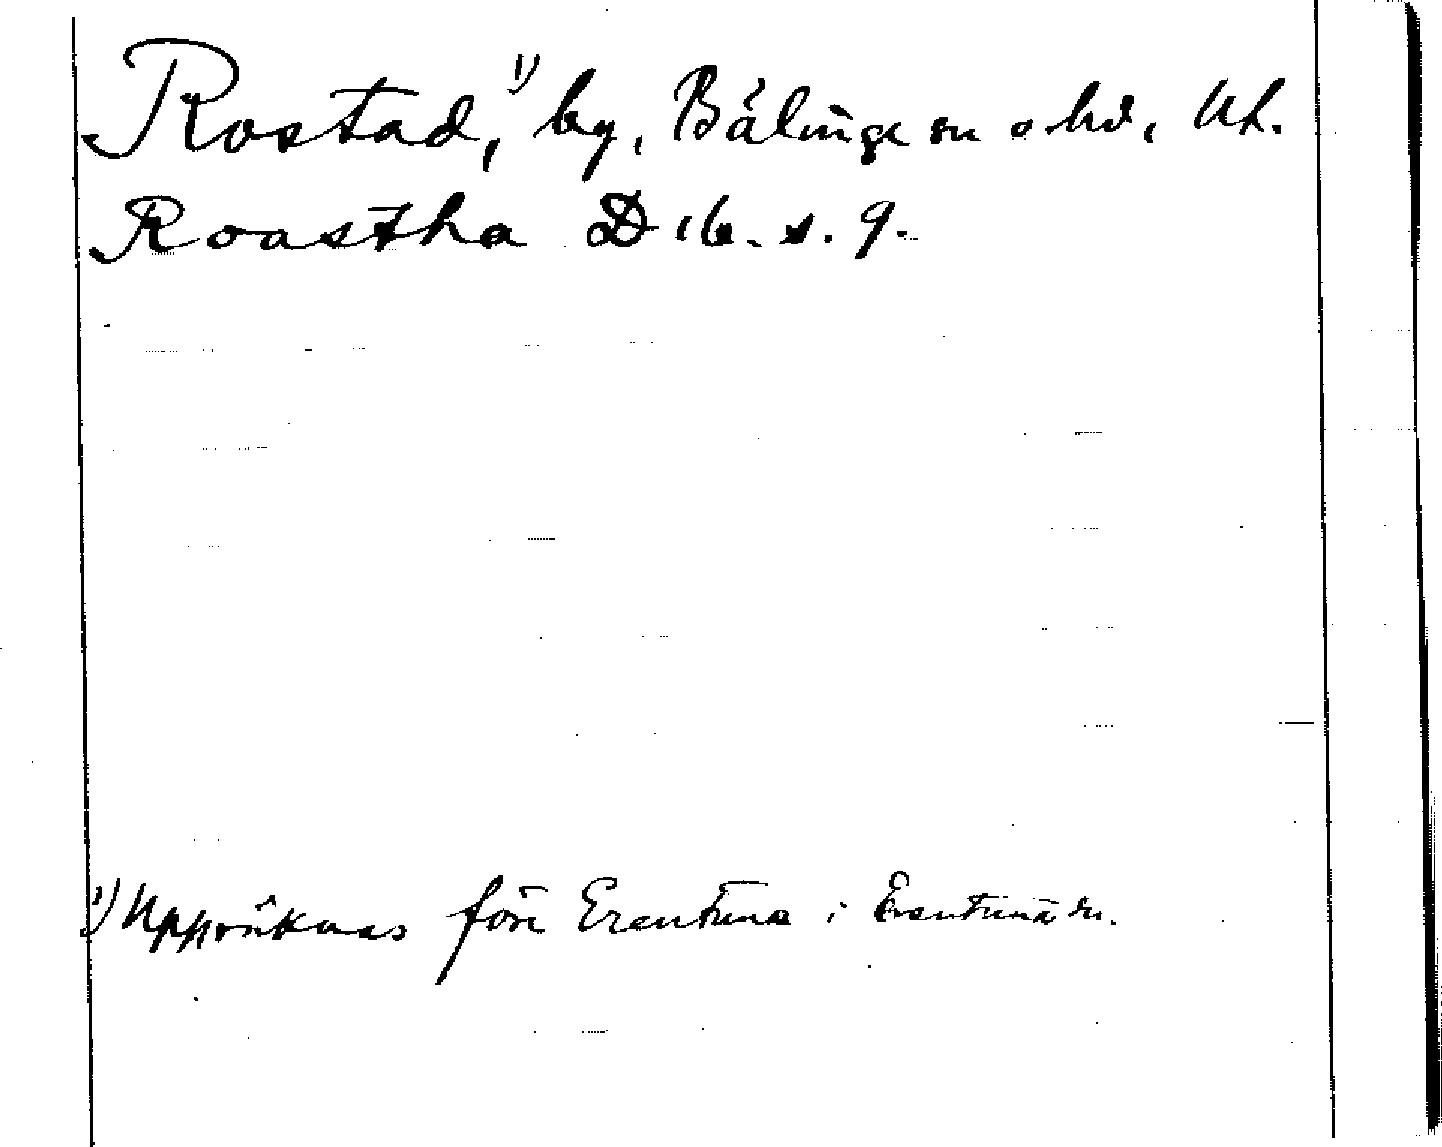 Rostad,¹⁾ by, Bälinge sn o. hd, Upl.
Roastha D 16. s. 9.
¹⁾ Uppräknas före Erentuna i Erentuna sn.